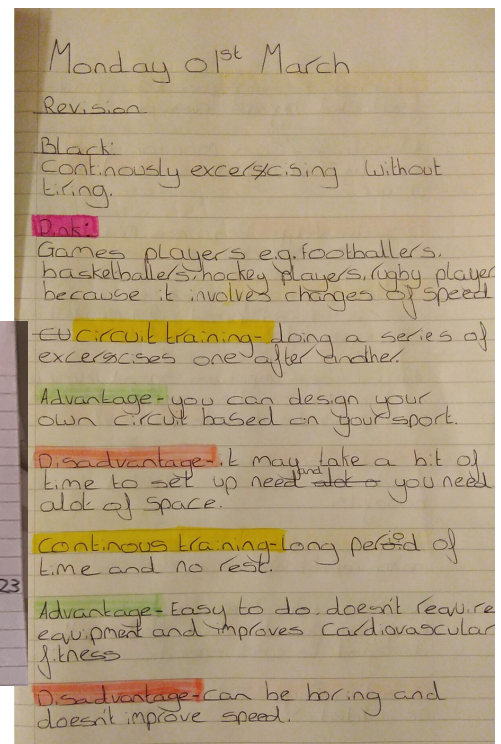 Monday 01st March
Revision
Black:
Continously excerscising without
tiring.
Pink:
Games players e.g. footballers,
basketballers, hockey players, rugby player
because it involves changes of speed
circuit training - doing a series of
excerscises one after another.
Advantage - you can design your
own circuit based on your sport.
Disadvantage - it may take a bit of
time to set up need and you need
alot of space.
Continous training - long period of
time and no rest.
23
Advantage - Easy to do. doesn't require
equipment and improves cardiovascular
fitness
Disadvantage - can be boring and
doesn't improve speed.